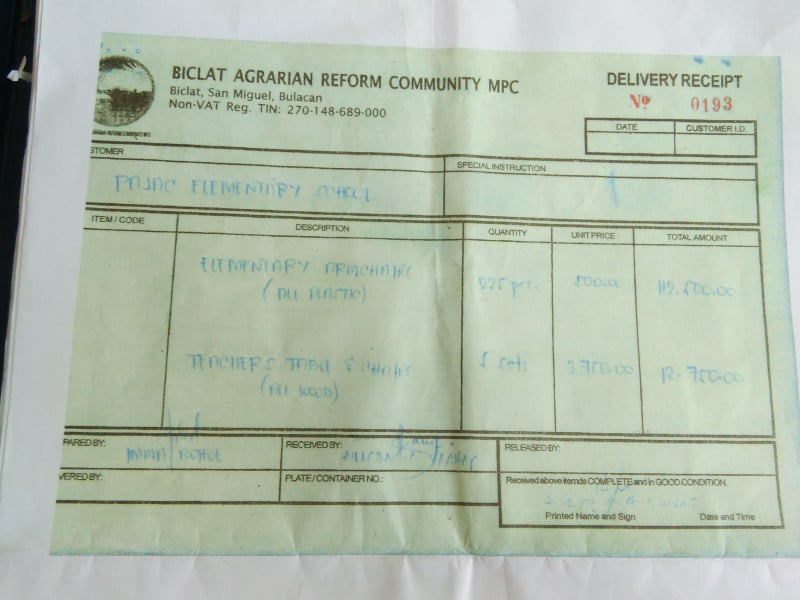 BICLAT AGRARIAN REFORM COMMUNITY MPC
Biclat, San Miguel, Bulacan
Non-VAT Reg. TIN: 270-148-689-000
DELIVERY RECEIPT
Nº 0193
DATE CUSTOMER I.D.
STOMER
SPECIAL INSTRUCTION
PAJAC ELEMENTARY SCHOOL
ITEM / CODE DESCRIPTION QUANTITY UNIT PRICE TOTAL AMOUNT
ELEMENTARY ARMCHAIRS 225 pcs. 500.00 112,500.00
(ALL PLASTIC)
TEACHER'S TABLE & CHAIRS 5 sets 3,750.00 18,750.00
(ALL WOOD)
PARED BY:
RECEIVED BY:
RELEASED BY:
VERED BY:
PLATE / CONTAINER NO.:
Received above itemds COMPLETE and in GOOD CONDITION.
Printed Name and Sign Date and Time